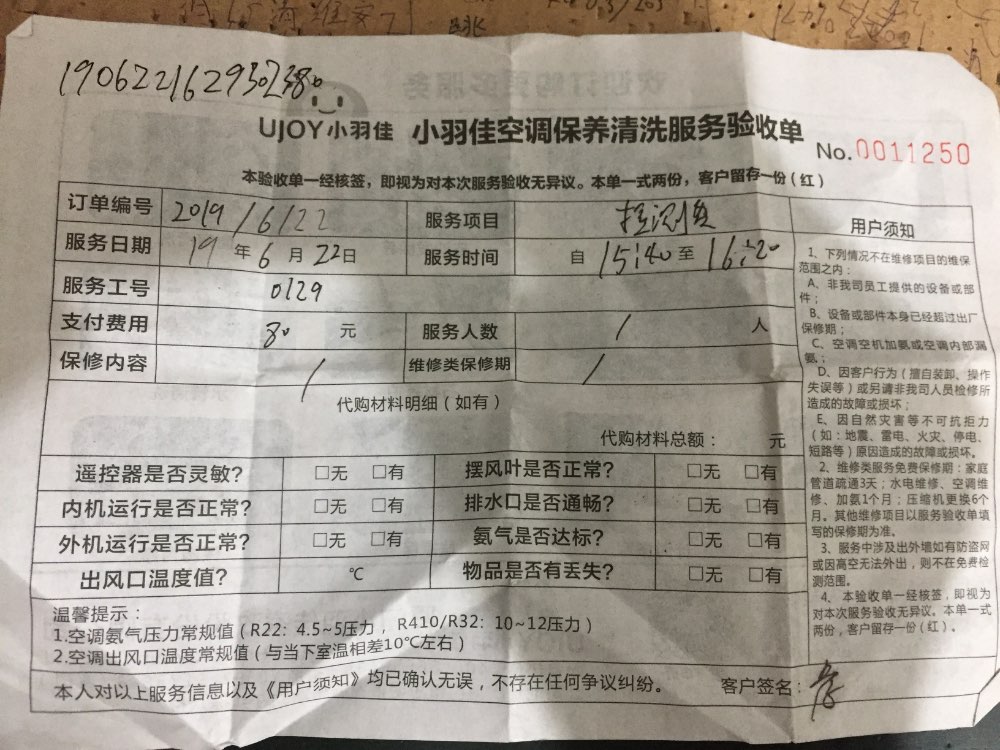 1906221629302380
UJOY小羽佳 小羽佳空调保养清洗服务验收单
No.0011250
本验收单一经核签，即视为对本次服务验收无异议。本单一式两份，客户留存一份（红）
订单编号 2019/6/22 服务项目
服务日期 19年6月22日 服务时间 自15:40至16:20
服务工号 0129
支付费用 80 元 服务人数 1 人
保修内容 / 维修类保修期 /
代购材料明细（如有）
代购材料总额： 元
遥控器是否灵敏? □无 □有 摆风叶是否正常? □无 □有
内机运行是否正常? □无 □有 排水口是否通畅? □无 □有
外机运行是否正常? □无 □有 氨气是否达标? □无 □有
出风口温度值? ℃ 物品是否有丢失? □无 □有
温馨提示：
1.空调氨气压力常规值（R22：4.5~5压力，R410/R32：10~12压力）
2.空调出风口温度常规值（与当下室温相差10℃左右）
本人对以上服务信息以及《用户须知》均已确认无误，不存在任何争议纠纷。 客户签名：
用户须知
1、下列情况不在维修项目的维保
范围之内：
A、非我司员工提供的设备或部
件；
B、设备或部件本身已经超过出厂
保修期；
C、空调空机加氨或空调内部漏
氨；
D、因客户行为（擅自装卸、操作
失误等）或另请非我司人员检修所
造成的故障或损坏；
E、因自然灾害等不可抗拒力
（如：地震、雷电、火灾、停电、
短路等）原因造成的故障或损坏。
2、维修类服务免费保修期：家庭
管道疏通3天；水电维修、空调维
修、加氨1个月；压缩机更换6个
月。其他维修项目以服务验收单填
写的保修期为准。
3、服务中涉及出外墙如有防盗网
或因高空无法外出，则不在免费检
测范围。
4、本验收单一经核签，即视为
对本次服务验收无异议。本单一式
两份，客户留存一份（红）。